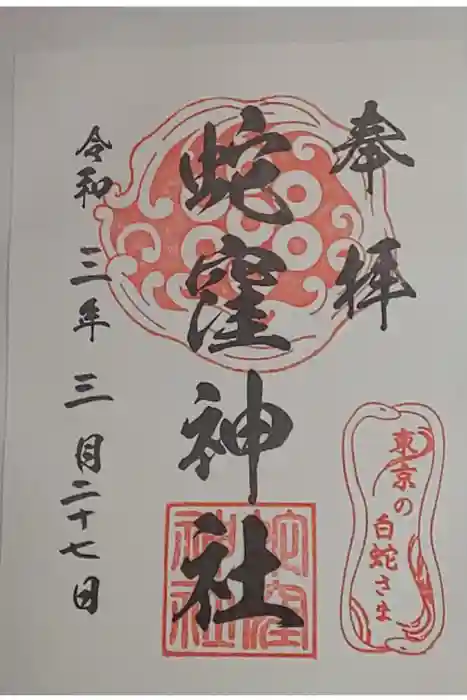 奉拝
蛇窪神社
令和三年三月二十七日
東京の
白蛇さま
蛇窪
神社